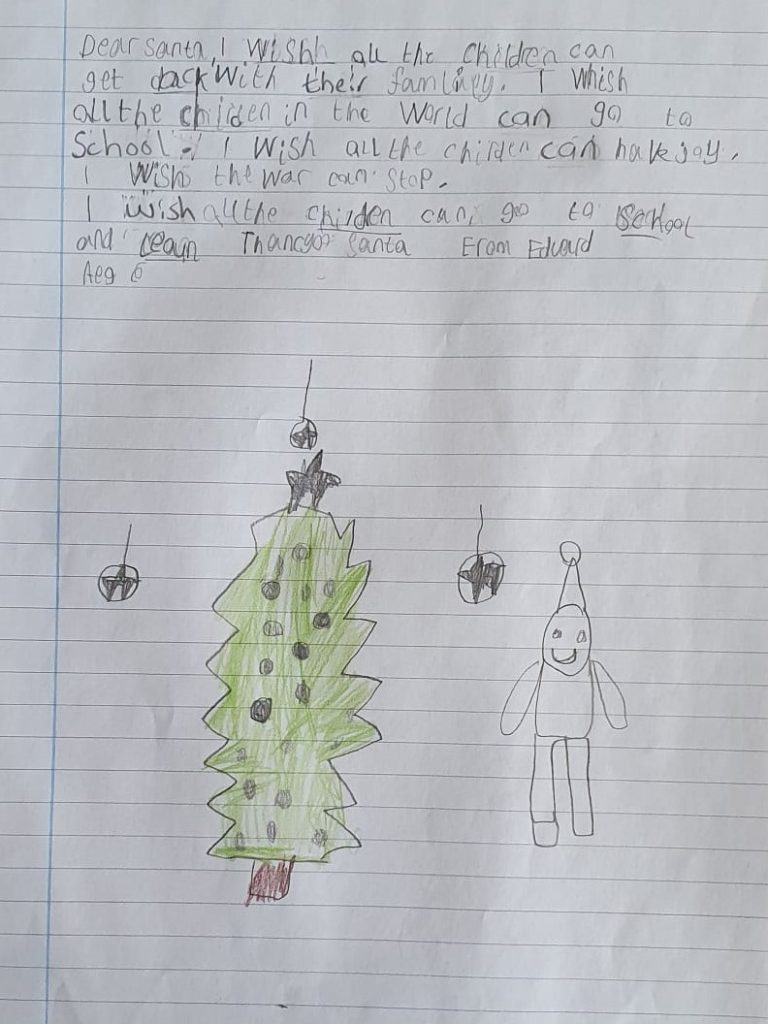 Dear santa, I wishh all the children can
get back with their famliey. I whish
all the chirden in the world can go to
School. I wish all the chirden can have joy.
I wish the war can stop.
I wish all the chirden can go to School
and leagn Thancyor Santa From Edward
Aeg 6